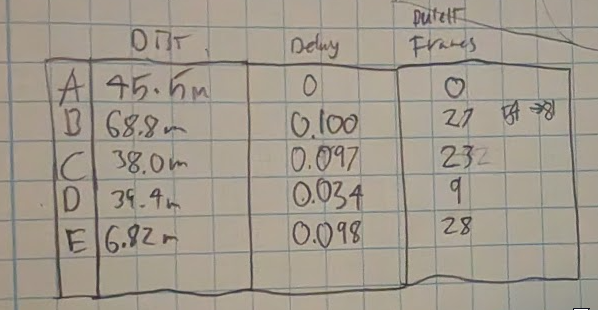 DIST Delay Frames
A 45.5m 0 0
B 68.8m 0.100 27
C 38.0m 0.097 232
D 39.4m 0.034 9
E 6.82m 0.098 28